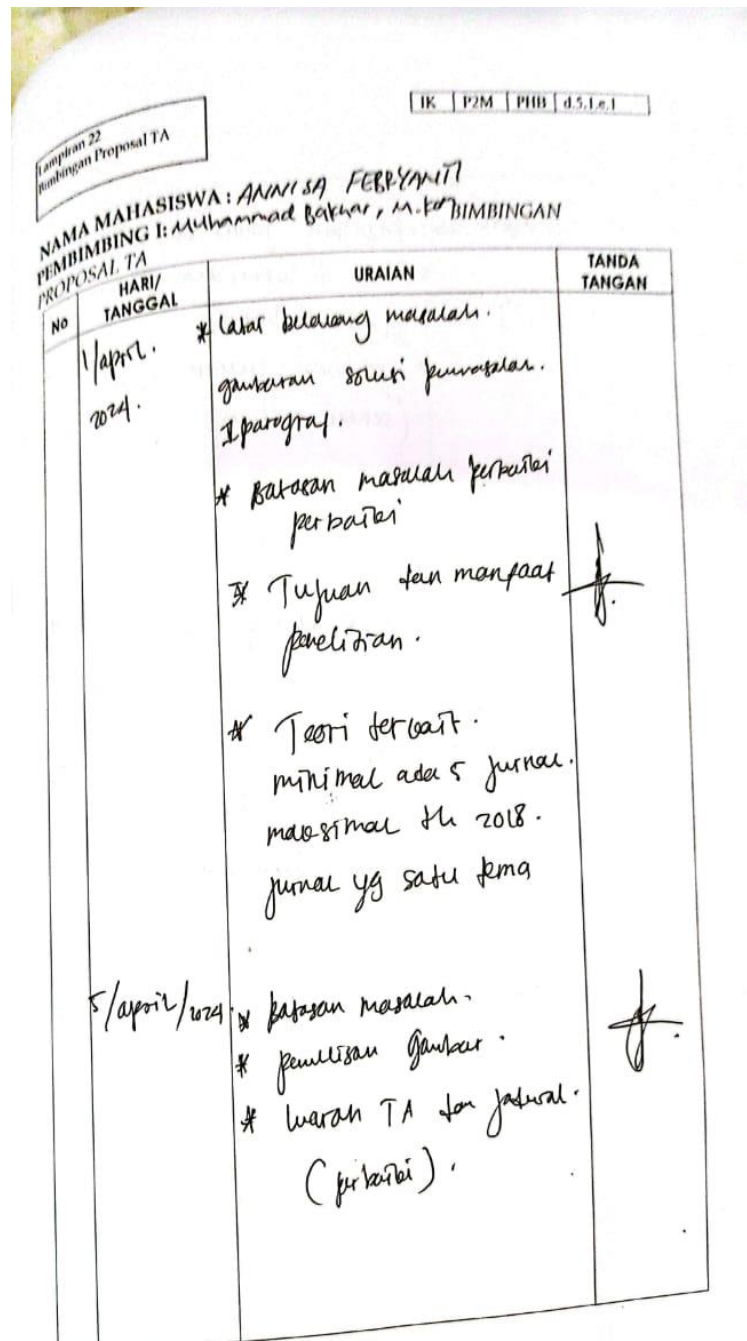 IK P2M PHB d.5.1.e.1
Lampiran 22
Bimbingan Proposal TA
NAMA MAHASISWA : ANNISA FEBRYANTI
PEMBIMBING I: Muhammad Bakhar, M.Kom BIMBINGAN
PROPOSAL TA
No HARI/ TANGGAL URAIAN TANDA TANGAN
1/april. 2024.
* latar belakang masalah.
gambaran solusi permasalan.
1 paragraf.
* Batasan masalah perbaiki
perbaiki
* Tujuan dan manfaat
penelitian.
* Teori terkait.
minimal ada 5 jurnal.
maksimal th 2018.
jurnal yg satu tema
5/april/2024
* Batasan masalah.
* penulisan Gambar.
* luaran TA dan jadwal.
(perbaiki).